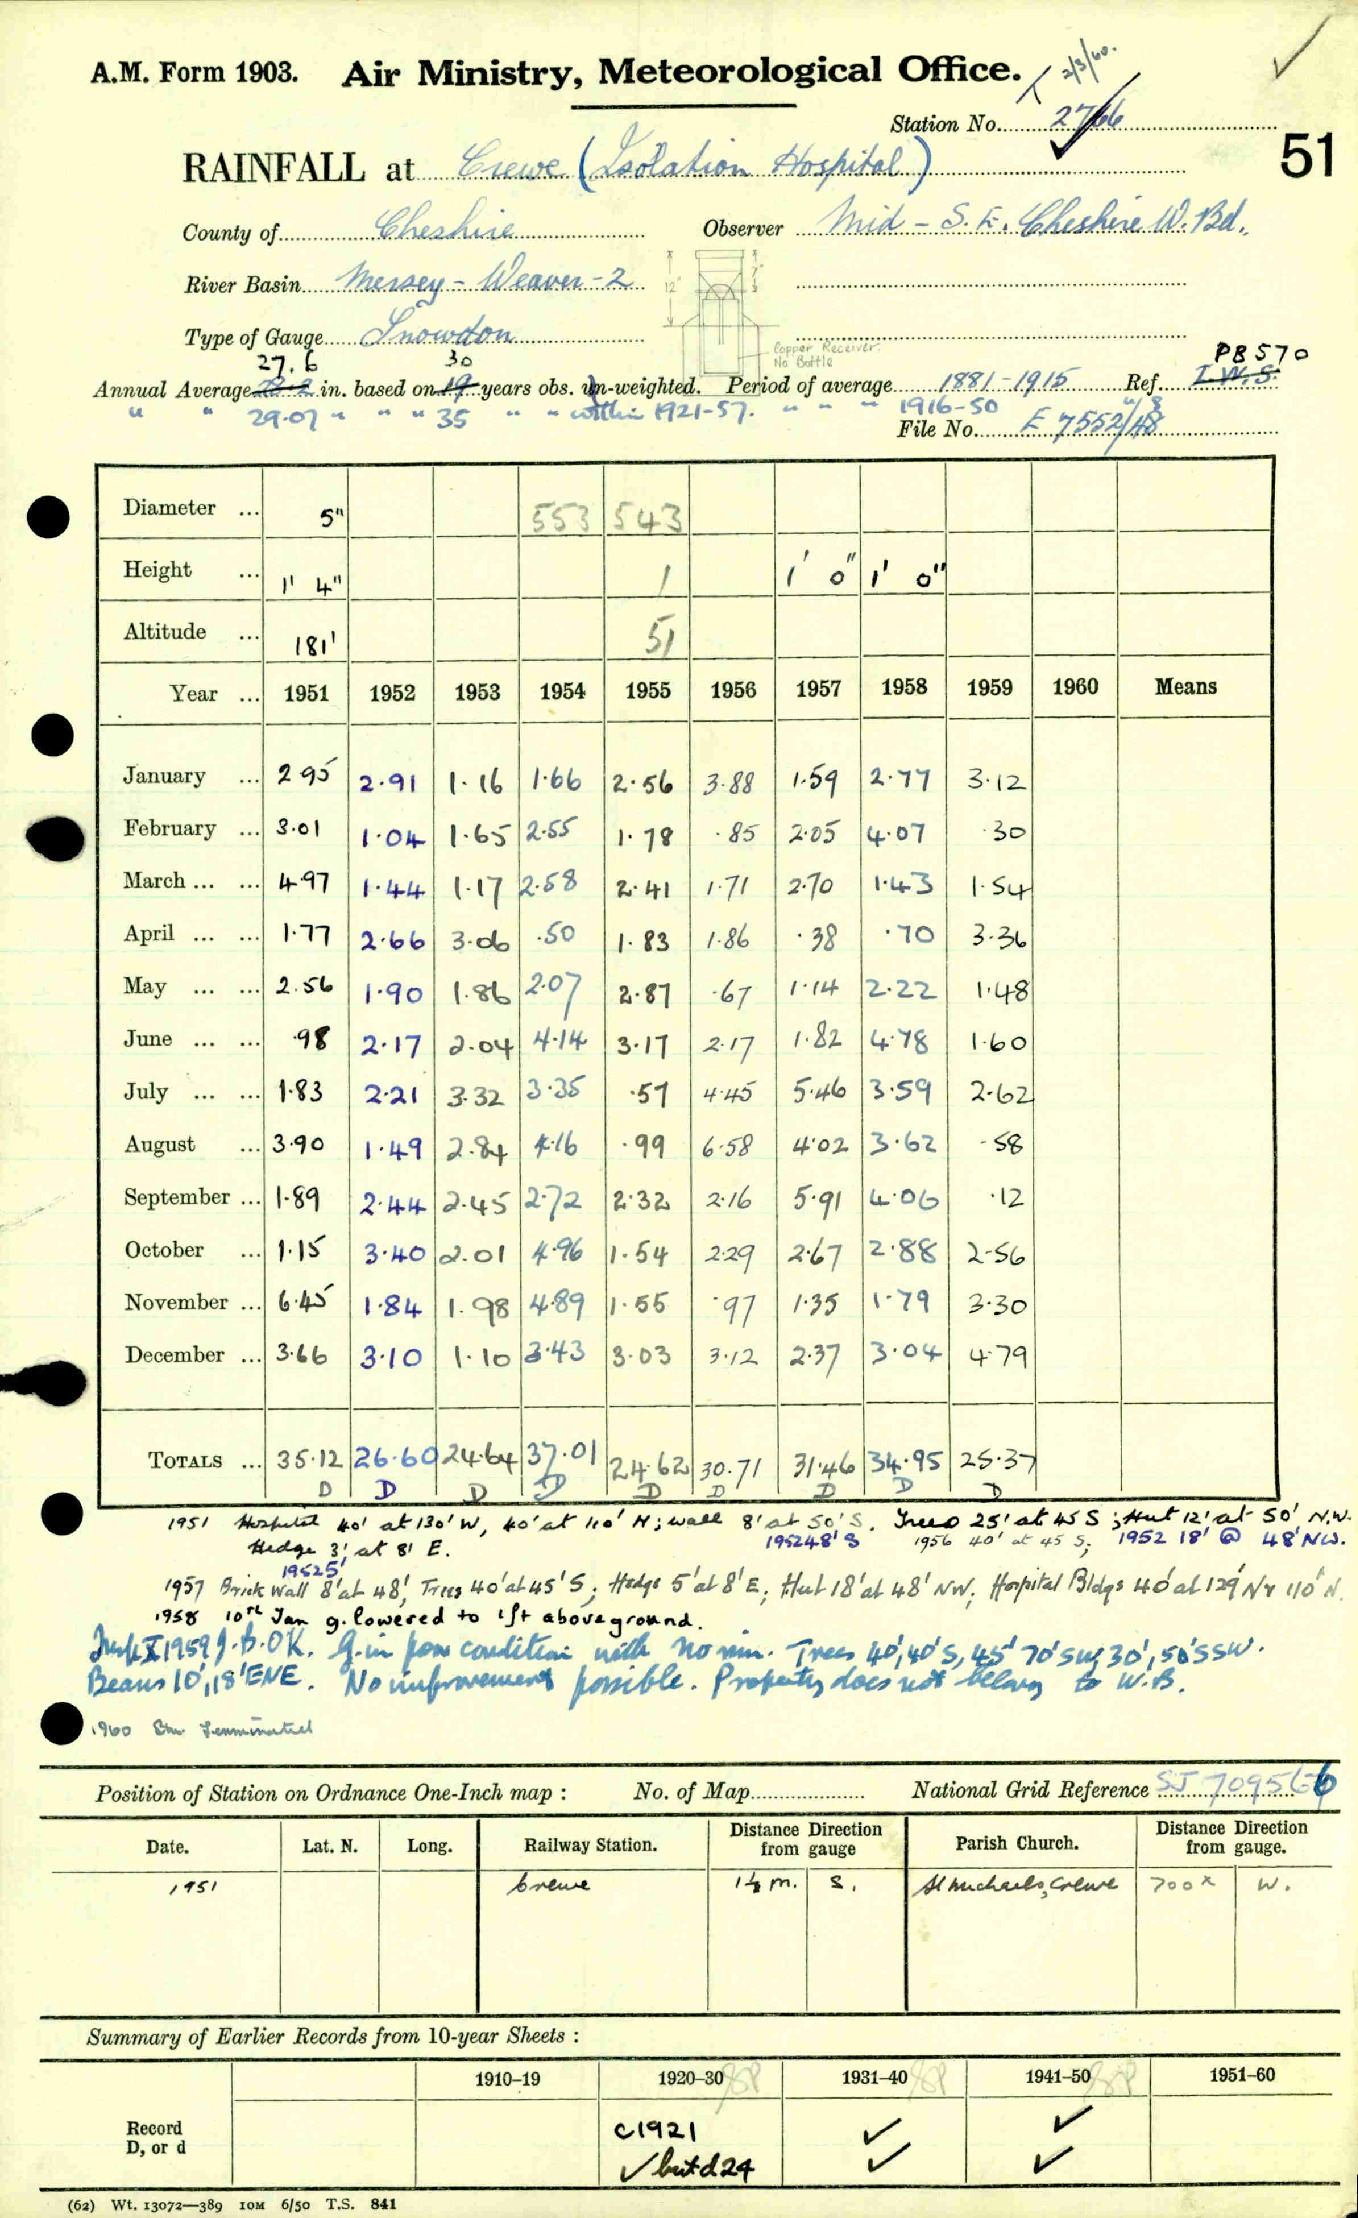 A.M. Form 1903. Air Ministry, Meteorological Office. 2/3/60.
Station No. 2766
51
RAINFALL at Crewe (Isolation Hospital)
County of Cheshire Observer Mid - S. E. Cheshire W. Bd.
River Basin Mersey - Weaver - 2
12"
Type of Gauge Snowdon
Copper Receiver.
No Bottle
27.6 30 PB 570
Annual Average in. based on 19 years obs. un-weighted. Period of average 1881-1915 Ref. I.W.S.
" " 29.07 " " " 35 " " within 1921-57. " " " 1916-50
File No. E 7552/48
Diameter ... 5" 553 543
Height ... 1' 4" 1 1' 0" 1' 0"
Altitude ... 181' 51
Year ... 1951 1952 1953 1954 1955 1956 1957 1958 1959 1960 Means
January ... 2.95 2.91 1.16 1.66 2.56 3.88 1.59 2.77 3.12
February ... 3.01 1.04 1.65 2.55 1.78 .85 2.05 4.07 .30
March ... ... 4.97 1.44 1.17 2.58 2.41 1.71 2.70 1.43 1.54
April ... ... 1.77 2.66 3.06 .50 1.83 1.86 .38 .70 3.36
May ... ... 2.56 1.90 1.86 2.07 2.87 .67 1.14 2.22 1.48
June ... ... .98 2.17 2.04 4.14 3.17 2.17 1.82 4.78 1.60
July ... ... 1.83 2.21 3.32 3.35 .57 4.45 5.46 3.59 2.62
August ... 3.90 1.49 2.84 4.16 .99 6.58 4.02 3.62 .58
September ... 1.89 2.44 2.45 2.72 2.32 2.16 5.91 4.06 .12
October ... 1.15 3.40 2.01 4.96 1.54 2.29 2.67 2.88 2.56
November ... 6.45 1.84 1.98 4.89 1.55 .97 1.35 1.79 3.30
December ... 3.66 3.10 1.10 3.43 3.03 3.12 2.37 3.04 4.79
TOTALS ... 35.12 26.60 24.64 37.01 24.62 30.71 31.46 34.95 25.37
D D D D D D D D D
1951 Hospital 40' at 130' W, 40' at 110' N; wall 8' at 50' S. Trees 25' at 45 S; Hut 12' at 50' N.W.
Hedge 3' at 8' E. 1952 48' S 1956 40' at 45 S; 1952 18' @ 48' NW.
1952 5'
1957 Brick Wall 8' at 48', Trees 40' at 45' S; Hedge 5' at 8' E; Hut 18' at 48' NW; Hospital Bldgs 40' at 129' N & 110' N.
1958 10th Jan g. lowered to 1 ft above ground.
X 1959 J.B. OK. G. in poor condition with no rim. Trees 40', 40' S, 45' 70' SW, 30', 50' SSW.
Beans 10', 18' ENE. No improvement possible. Property does not belong to W.B.
1960 Stn. Terminated
Position of Station on Ordnance One-Inch map : No. of Map National Grid Reference SJ 709566
Date. Lat. N. Long. Railway Station. Distance from Direction gauge Parish Church. Distance from Direction gauge.
1951 Crewe 1½ m. S. St Michaels, Crewe 700 x W.
Summary of Earlier Records from 10-year Sheets :
1910–19 1920–30 1931–40 1941–50 1951–60
Record c1921 ✓ ✓
D, or d ✓ but d24 ✓ ✓
(62) Wt. 13072—389 10M 6/50 T.S. 841